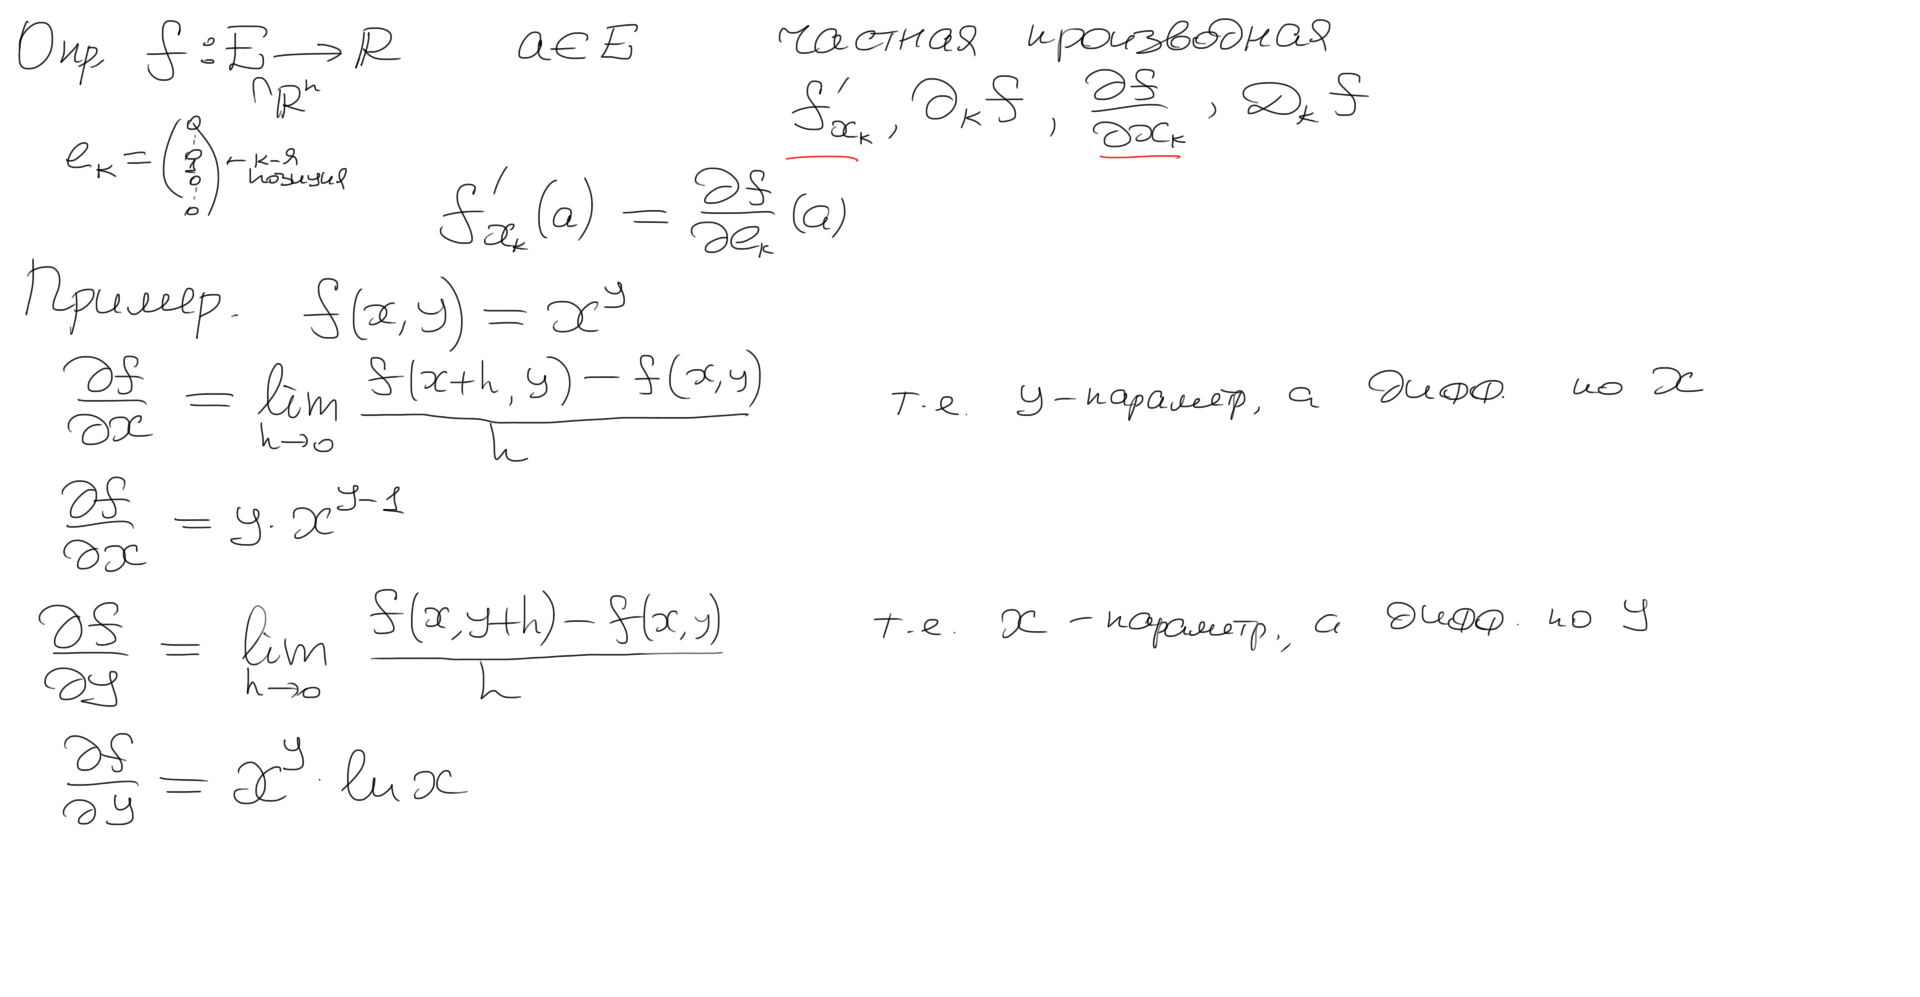 Опр. f : E → ℝ a ∈ E частная производная
∩ ℝⁿ
f'_{x_k}, ∂_k f, ∂f/∂x_k, D_k f
e_k = (0 ⋮ 0 1 0 ⋮ 0) ← k-я позиция
f'_{x_k}(a) = ∂f/∂e_k (a)
Пример. f(x,y) = x^y
∂f/∂x = lim_{h→0} (f(x+h, y) − f(x,y))/h т.е. y – параметр, а дифф. по x
∂f/∂x = y · x^{y−1}
∂f/∂y = lim_{h→0} (f(x,y+h) − f(x,y))/h т.е. x – параметр, а дифф. по y
∂f/∂y = x^y · ln x